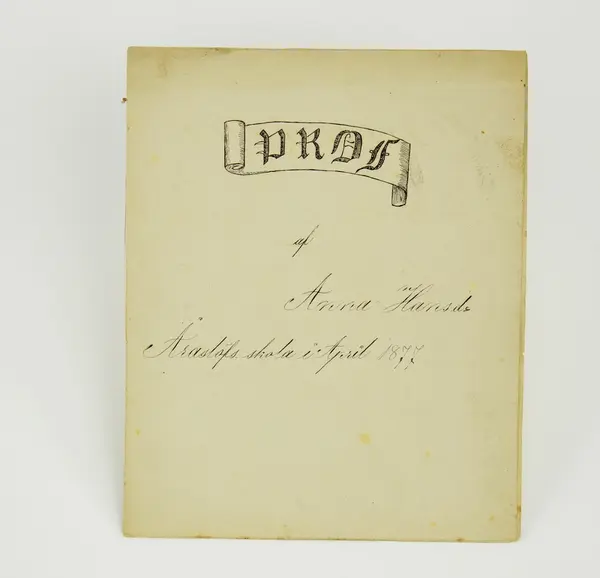 PROF
af
Anna Hansdr
Åraslöfs skola i April 1877